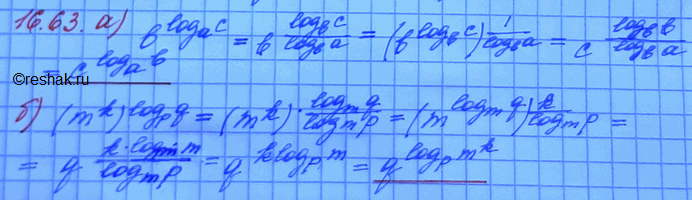 16.63. а) b^{log_a c} = b^{\frac{log_b c}{log_b a}} = (b^{log_b c})^{\frac{1}{log_b a}} = c^{\frac{log_b b}{log_b a}}
= c^{log_a b}
©reshak.ru
б) (m^k)^{log_p q} = (m^k)^{\cdot \frac{log_m q}{log_m p}} = (m^{log_m q})^{\frac{k}{log_m p}} =
= q^{\frac{k \cdot log_m m}{log_m p}} = q^{k log_p m} = q^{log_p m^k}